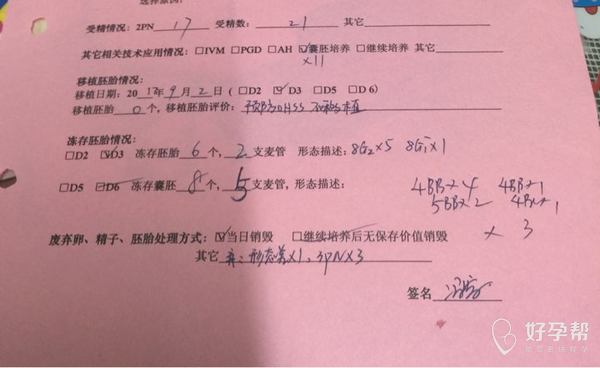 受精情况：2PN 17 受精数： 21 其它
其它相关技术应用情况：□IVM □PGD □AH ☑囊胚培养 □继续培养 其它
×11
移植胚胎情况：
移植日期：2017年9月2日（□D2 ☑D3 □D5 □D6）
移植胚胎 0 个，移植胚胎评价：预防OHSS 不移植
冻存胚胎情况：
□D2 ☑D3 冻存胚胎 6 个， 2 支麦管 形态描述：8G2×5 8G1×1
□D5 ☑D6 冻存囊胚 8 个， 5 支麦管，形态描述：
4BB×4 4BB×1
5BB×2
×3
废弃卵、精子、胚胎处理方式：☑当日销毁 □继续培养后无保存价值销毁
其它 弃：形态差×1、3PN×3
签名
好孕帮